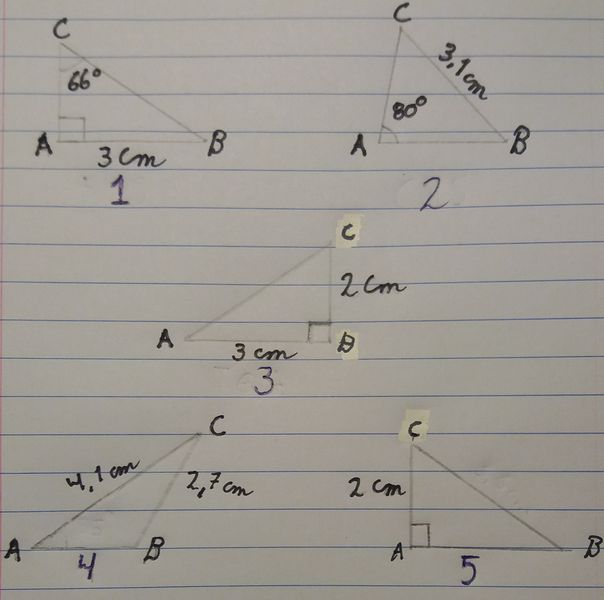 C
66°
A
B
3 cm
1
C
3,1 cm
80°
A
B
2
C
2 cm
A
B
3 cm
3
C
4,1 cm
2,7 cm
A
B
4
C
2 cm
A
B
5